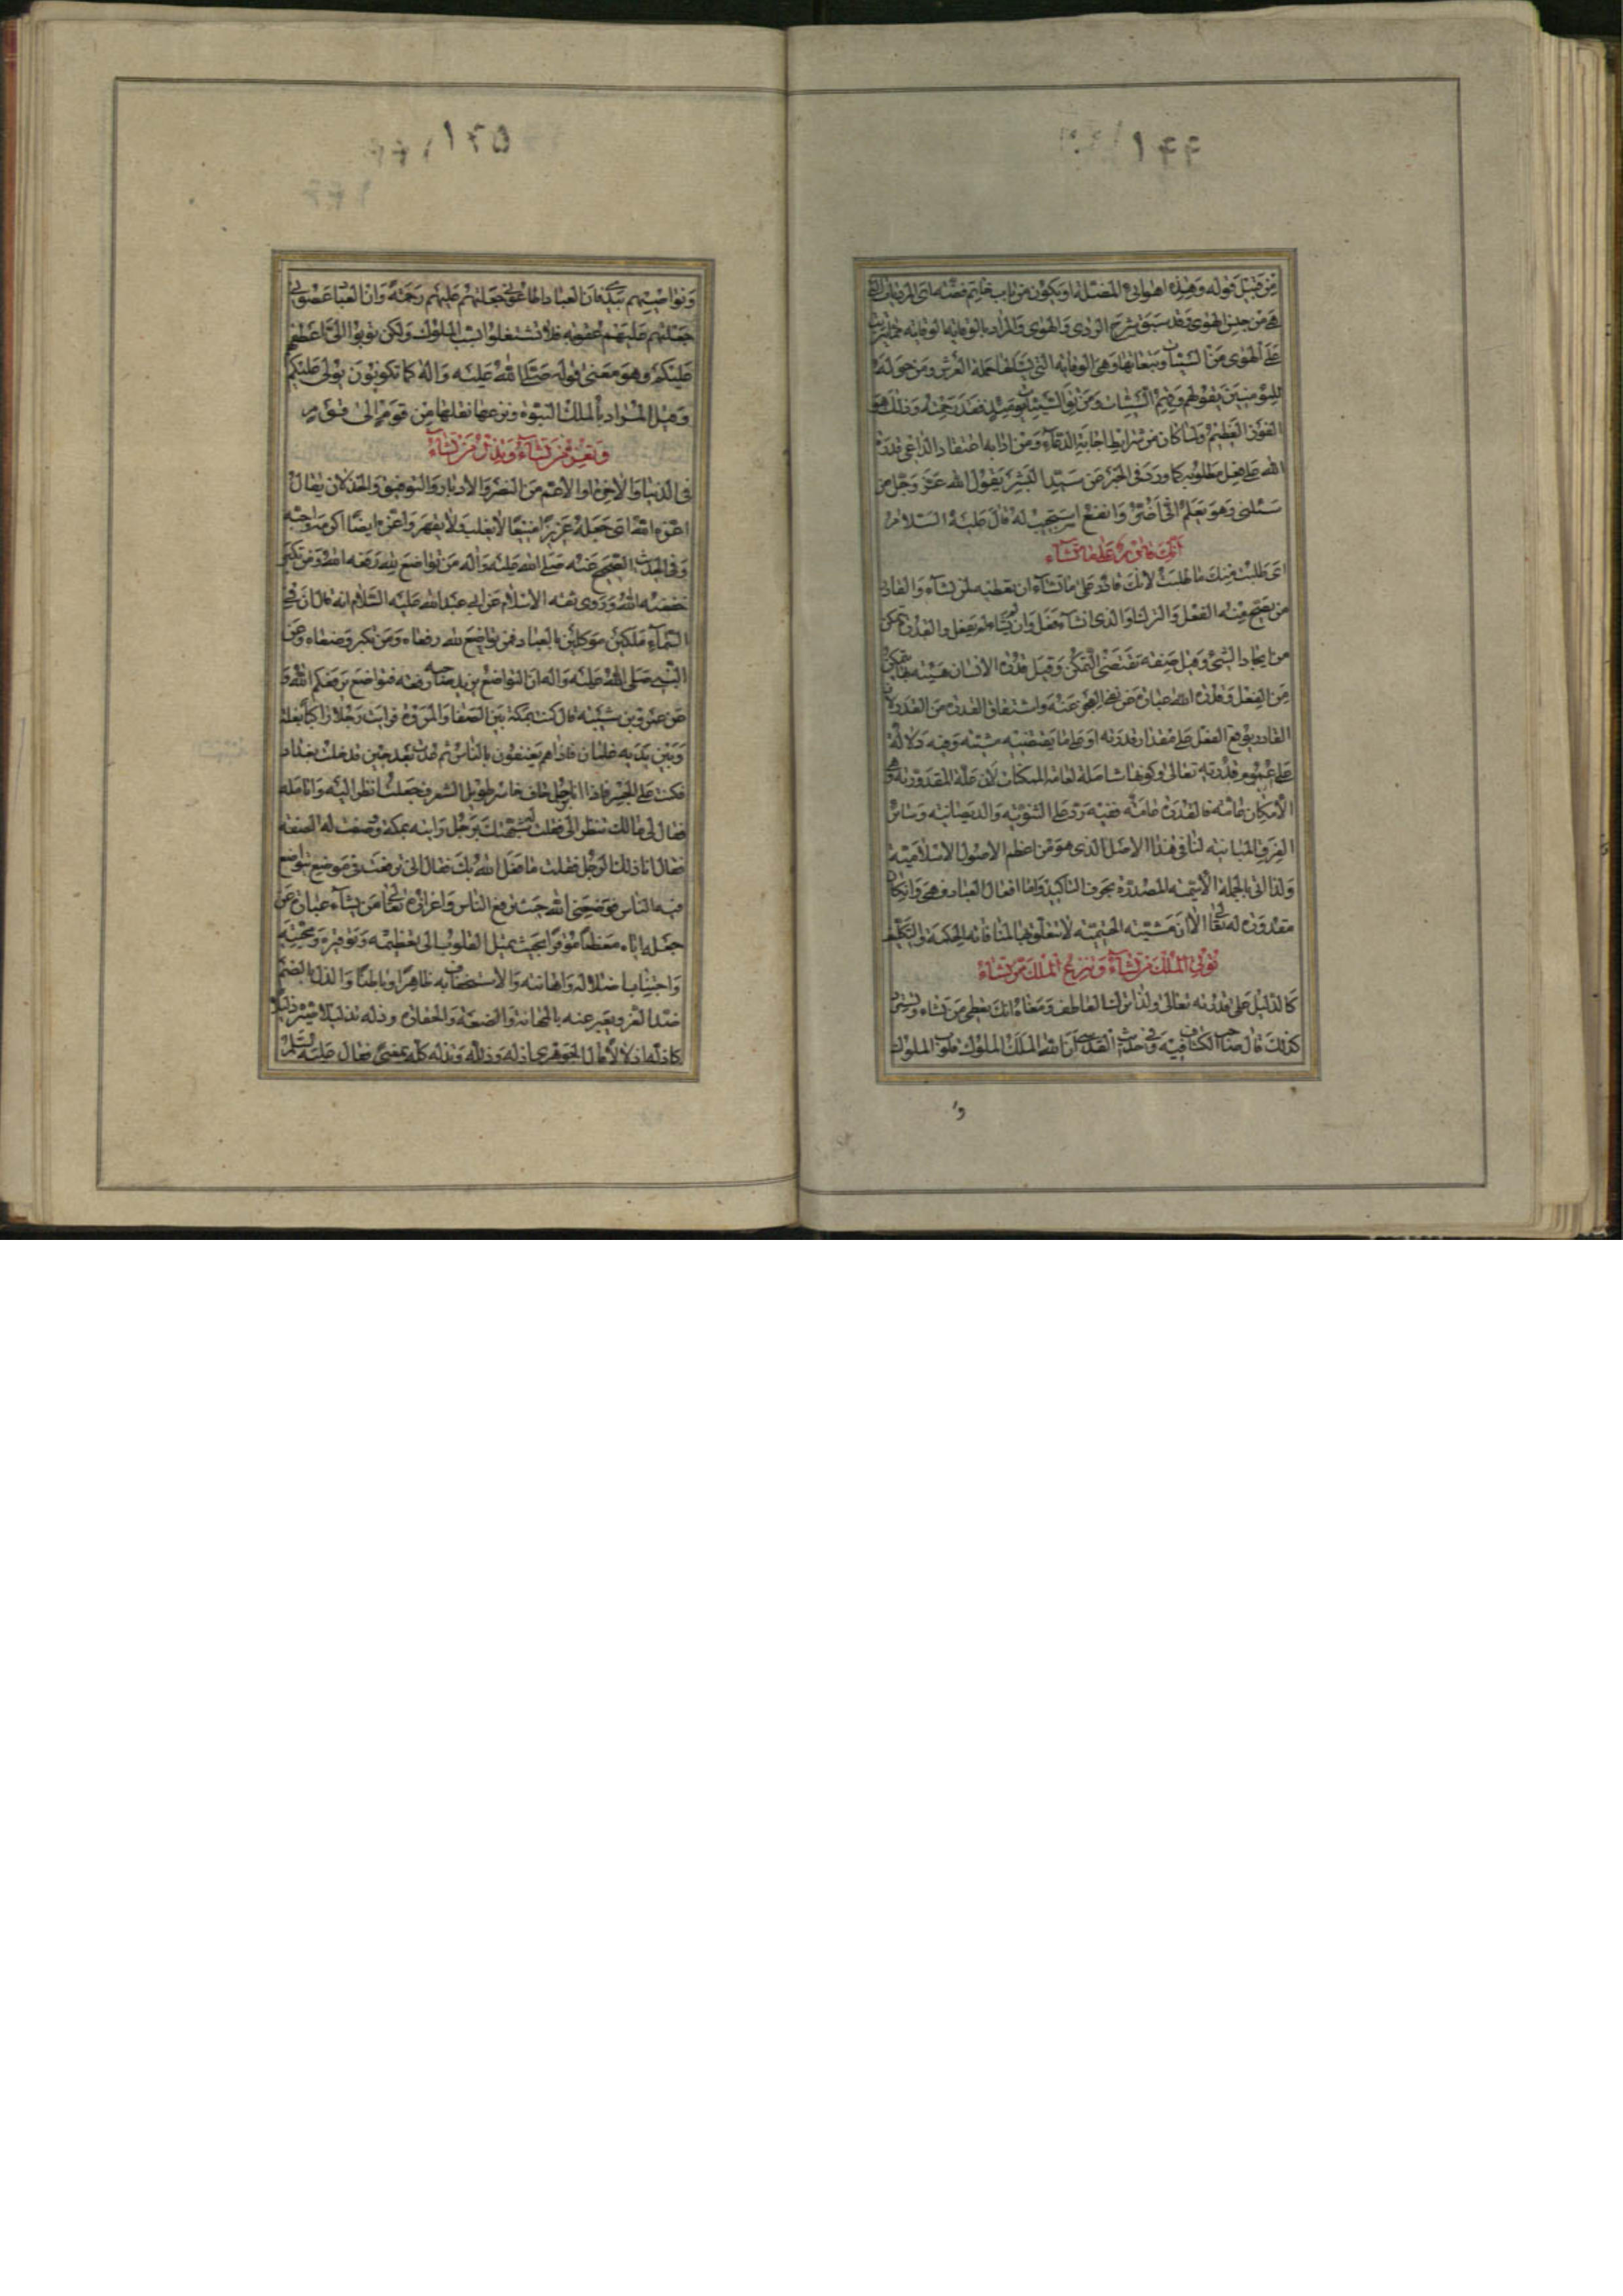 ۱۴۴
من قبيل قوله وهذه اهوائى المضلة او يكون من باب خاتم فضة اى المرديات التى
هى من جنس الهوى وقد سبق شرح الردى والهوى والمراد بالوقاية الوقاية مما يترتب
على الهوى من السيئات وتبعاتها وهى الوقاية التى يسئلها حملة العرش ومن حوله
للمؤمنين بقولهم وقهم السيئات ومن تق السيئات يومئذ فقد رحمته وذلك هو
الفوز العظيم ولما كان من شرايط اجابة الدعاء ومن ادابه اعتقاد الداعى قدرة
الله على فعل مطلوبه كما ورد فى الخبر عن سيد البشر يقول الله عز وجل من
سئلنى وهو يعلم انى اضر وانفع استجيب له قال عليه السلام
انك قادر على ما تشاء
اى طلبت منك ما طلبت لانك قادر على ما تشاء ان تعطيه لمن تشاء والقادر
من يصح منه الفعل والترك او الذى ان شاء فعل وان لم يشاء لم يفعل والقدرة تمكن
من ايجاد الشئ وقيل صفة تقتضى التمكن وقيل قدرة الانسان هيئة بها يتمكن
من الفعل وقدرة الله عبارة عن نفى العجز عنه واشتقاق القدرة من القدر لان
القادر يوقع الفعل على مقدار قدرته او على ما يقتضيه مشيته وفيه دلالة
على عموم قدرته تعالى وكونها شاملة لعامة الممكنات لان علة المقدورية هى
الامكان عامة فالقدرة عامة ففيه رد على الثنوية والديصانية وساير
الفرق المباينة لنا فى هذا الاصل الذى هو من اعظم الاصول الاسلامية
ولذا اتى بالجملة الاسمية المصدرة بحرف التاكيد واما افعال العباد فهى وان كان
مقدورة له تعالى الا ان مشيته الحتمية لا تتعلق بها لمنافاته الحكمة والتكليف
تؤتى الملك من تشاء وتنزع الملك ممن تشاء
كالدليل على قدرته تعالى ولذا ترك العاطف ومعناه انك تعطى من تشاء
كذلك قال صاحب الكشاف فيه وفى حديث القدسى ان الله الملك الملوك قلوب الملوك
و
۱۴۵
ونواصيهم بيدى ان العباد اطاعونى جعلتهم عليهم رحمة وان العباد عصونى
جعلتهم عليهم عقوبة فلا تشتغلوا بسب الملوك ولكن توبوا الى اعطفهم
عليكم وهو معنى قوله صلى الله عليه واله كما تكونون يولى عليكم
وقيل المراد بالملك النبوة ونزعها نقلها من قوم الى قوم
وتعز من تشاء وتذل من تشاء
فى الدنيا والاخرة او الاعم من النصر والادبار والتوفيق والخذلان يقال
اعزه الله اى جعله عزيزا منيعا لا يغلب ولا يقهر واعزه ايضا اكرمه واحبه
وفى الحديث الصحيح عنه صلى الله عليه واله من تواضع لله رفعه الله ومن تكبر
خفضه الله وروى ثقة الاسلام عن ابى عبد الله عليه السلام انه قال ان فى
السماء ملكين موكلين بالعباد فمن تواضع لله رفعاه ومن تكبر وضعاه وعن
النبى صلى الله عليه واله ان التواضع يزيد صاحبه رفعة فتواضع يرفعكم الله و
عن عمرو بن شيبة قال كنت بمكة بين الصفا والمروة فرايت رجلا راكبا بغلة
وبين يديه غلمان فاذا هم يعنفون بالناس ثم عدت بعد حين فدخلت بغداد
فكنت على الجسر فاذا انا برجل حاف حاسر طويل الشعر فجعلت انظر اليه واتامله
فقال لى مالك تنظر الى فقلت شبهتك برجل رايته بمكة وصفت له الصفة
فقال انا ذلك الرجل فقلت ما فعل الله بك فقال انى ترفعت فى موضع يتواضع
فيه الناس فوضعنى الله حيث يترفع الناس واعزازه تعالى من يشاء عبارة عن
جعله اياه معظما موقرا بحيث يميل القلوب الى تعظيمه وتوقيره ومحبته
واجتناب اضلاله واهانته والاستخفاف به ظاهرا وباطنا والذل بالضم
ضد العز ويعبر عنه بالمهانة والضعة والحقارة وذله تذليلا صيره ذليلا
كاذله اذلالا قال الجوهرى اذله وذلله كله بمعنى فقال عليه السلام